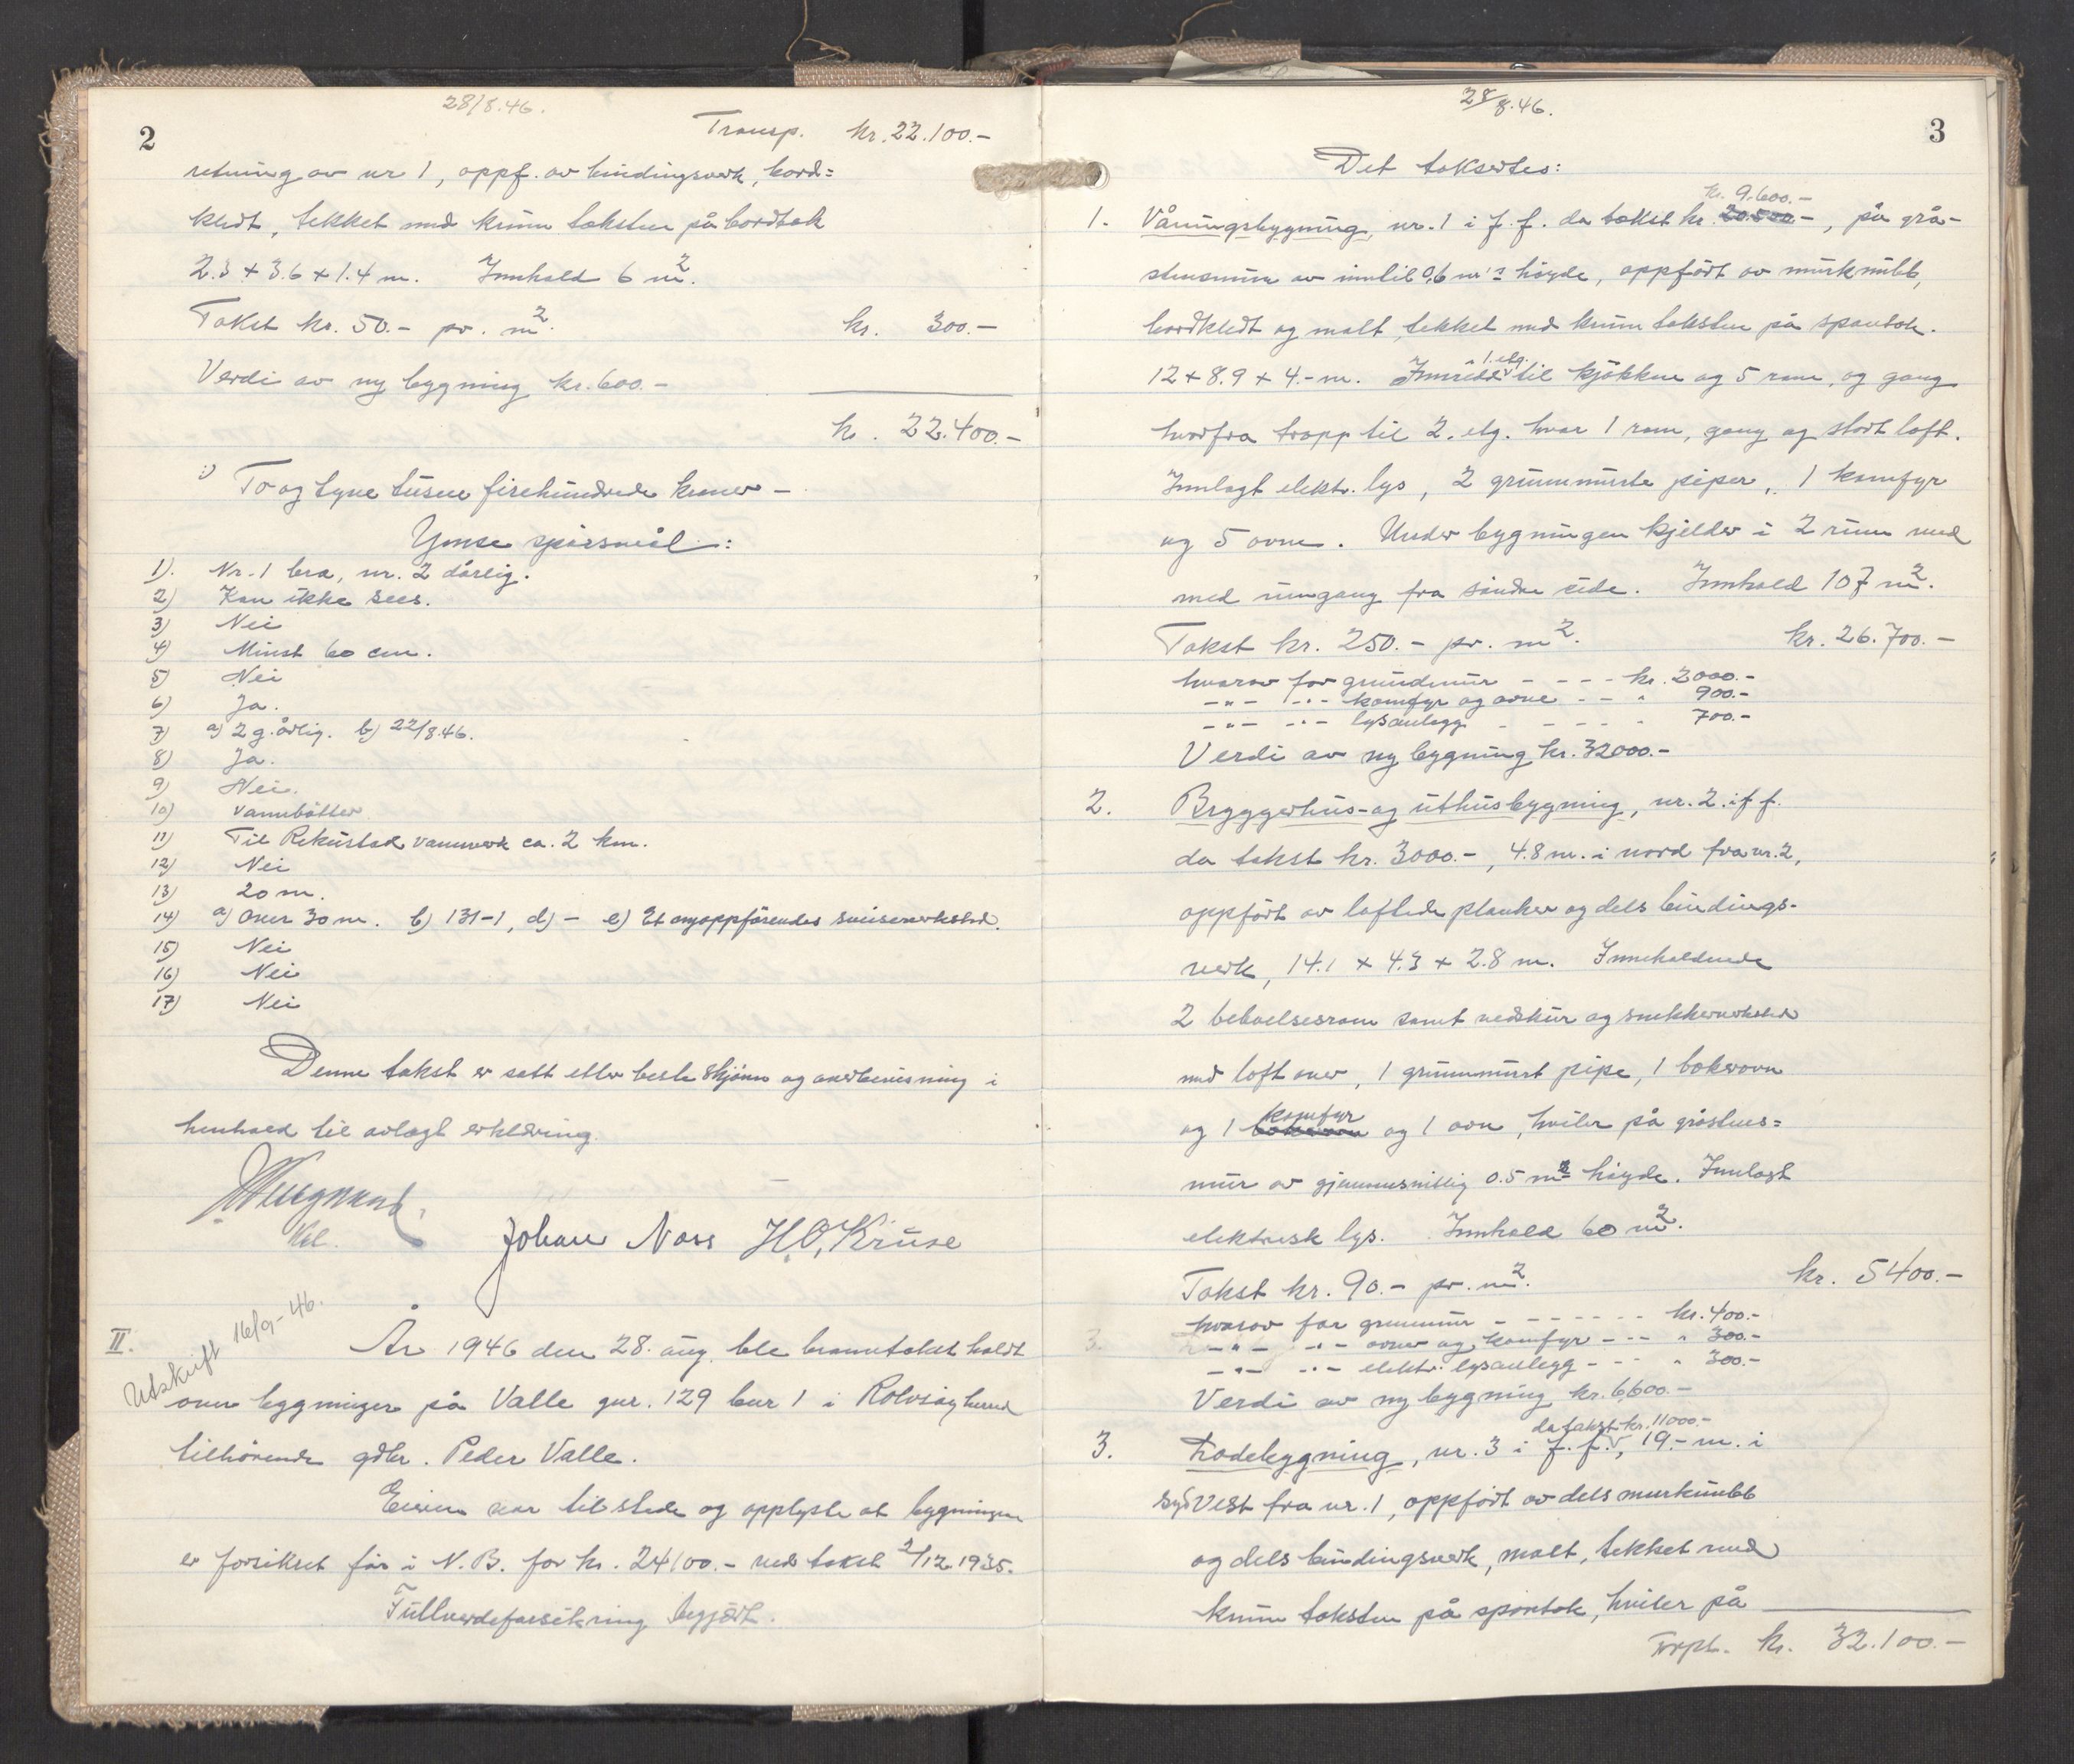 28/8.46.
2
Transp. kr. 22.100.-
retning av nr 1, oppf. av bindingsverk, bord=
kledt, tekket med krum taksten på bordtak
2.3 + 3.6 + 1.4 m. Innhold 6 m2.
Takst kr. 50.- pr. m2. kr. 300.-
Verdi av ny bygning kr. 600.-
kr. 22.400.-
:) To og tyve tusen firehundrede kroner -
Ymse spørsmål:
1). Nr. 1 bra, nr. 2 dårlig.
2) Kan ikke sees.
3) Nei
4) Minst 60 cm.
5) Nei
6) Ja.
7) a) 2 g. årlig. b) 22/8.46.
8) Ja.
9) Nei.
10) Vannbøtter
11) Til Rekustad vannverk ca. 2 km.
12) Nei
13) 20 m.
14) a) Over 30 m. b) 131-1, d) - e) Et nyoppførendes sveiseverksted.
15) Nei
16) Nei
17) Nei
Denne takst er satt etter beste skjønn og overbevisning i
henhold til avlagt erklæring.
Johan Nass H.O. Kruse
Utskrift 16/9-46.
II. År 1946 den 28. aug. ble branntakst holdt
over bygninger på Valle gnr. 129 bnr 1 i Rolvsøy herred
tilhørende gdbr. Peder Valle.
Eieren var tilstede og opplyste at bygningene
er forsikret før i N.B. for kr. 24100.- ved takst 2/12 1935.
Fullverdeforsikring begjært.
28/8.46.
3
Det taksertes:
kr. 9.600.-
1. Våningsbygning, nr. 1 i f. f. da takst kr. 20.500.-, på grå-
stensmur av inntil 0,6 m's høyde, oppført av murkubb,
bordkledt og malt, tekket med krum taksten på spontak.
i 1. etg.
12 + 8.9 + 4.- m. Innredet til kjøkken og 5 rom, og gang
hvorfra trapp til 2. etg. hvor 1 rom, gang og stort loft.
Innlagt elektr. lys, 2 grunnmurte piper, 1 komfyr
og 5 ovne. Under bygningen kjelder i 2 rum med
med inngang fra søndre side. Innhold 107 m2.
Takst kr. 250.- pr. m2. kr. 26.700.-
hvorav for grundmur - - - kr. 2000.-
-"- -"- komfyr og ovne - - " 900.-
-"- -"- lysanlegg - - - - " 700.-
Verdi av ny bygning kr. 32000.-
2. Bryggerhus- og uthusbygning, nr. 2. i f f.
da takst kr. 3000.-, 4.8 m. i nord fra nr. 2,
oppført av laftede planker og dels bindings-
verk, 14.1 + 4.3 + 2.8 m. Inneholdende
2 beboelsesrom samt vedskur og snekkerverksted
med loft over, 1 grunnmurt pipe, 1 bakerovn
komfyr
og 1 bakerovn og 1 ovn, hviler på gråstens=
mur av gjennomsnittlig 0.5 m's høyde. Innlagt
elektrisk lys. Innhold 60 m2.
Takst kr. 90.- pr. m2. kr. 5400.-
hvorav for grunnmur - - - - - - kr. 400.-
-"- -"- ovner og komfyr - - - " 300.-
-"- -"- elektr. lysanlegg - - - " 300.-
Verdi av ny bygning kr. 6,600.-
da takst kr. 11000.-
3. Ladebygning, nr. 3 i f. f., 19.- m. i
sydvest fra nr. 1, oppført av dels murkubb
og dels bindingsverk, malt, tekket med
krum taksten på spontak, hviler på
Trpt. kr. 32.100.-